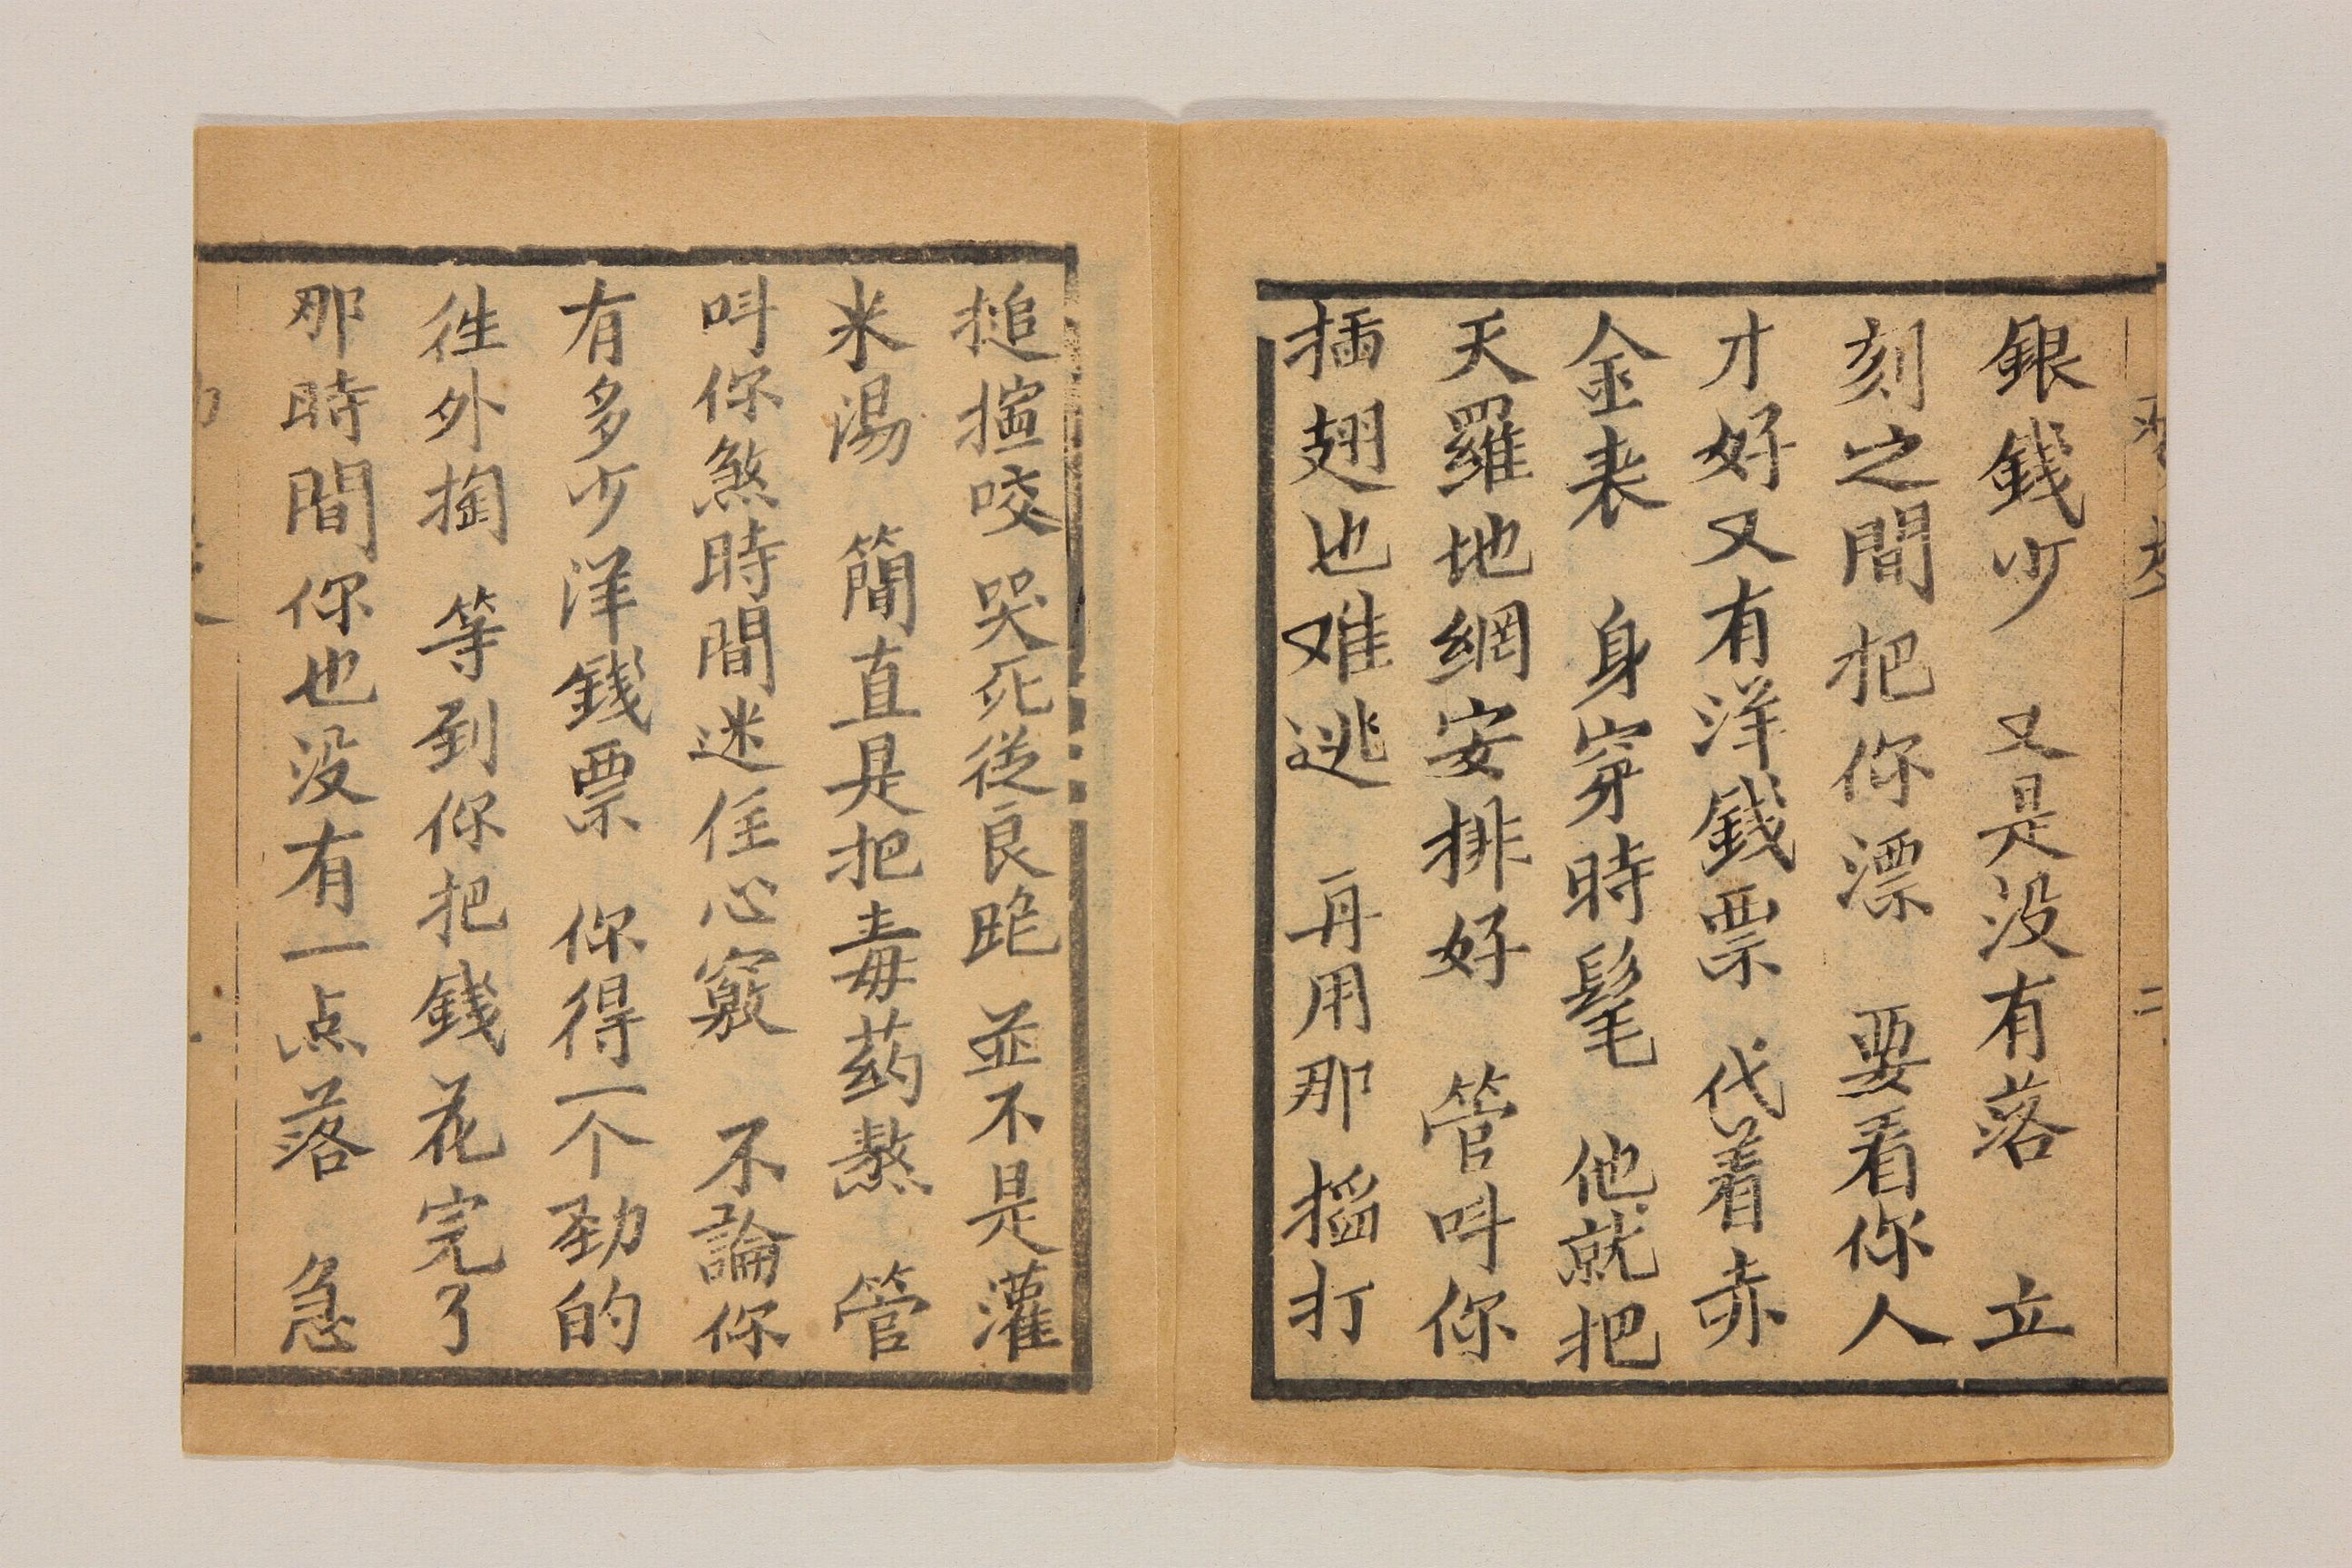 銀錢少　又是没有落　立
刻之間把你漂　要看你人
才好又有洋錢票　代着赤
金表　身穿時髦　他就把
天羅地網安排好　管呌你
插翅也难逃　再用那搯打
搥揎咬　哭死從良跪　並不是灌
米湯　簡直是把毒药熬　管
呌你煞時間迷住心竅　不論你
有多少洋錢票　你得一个劲的
徃外掏　等到你把錢花完了
那時間你也没有一点落　急
二